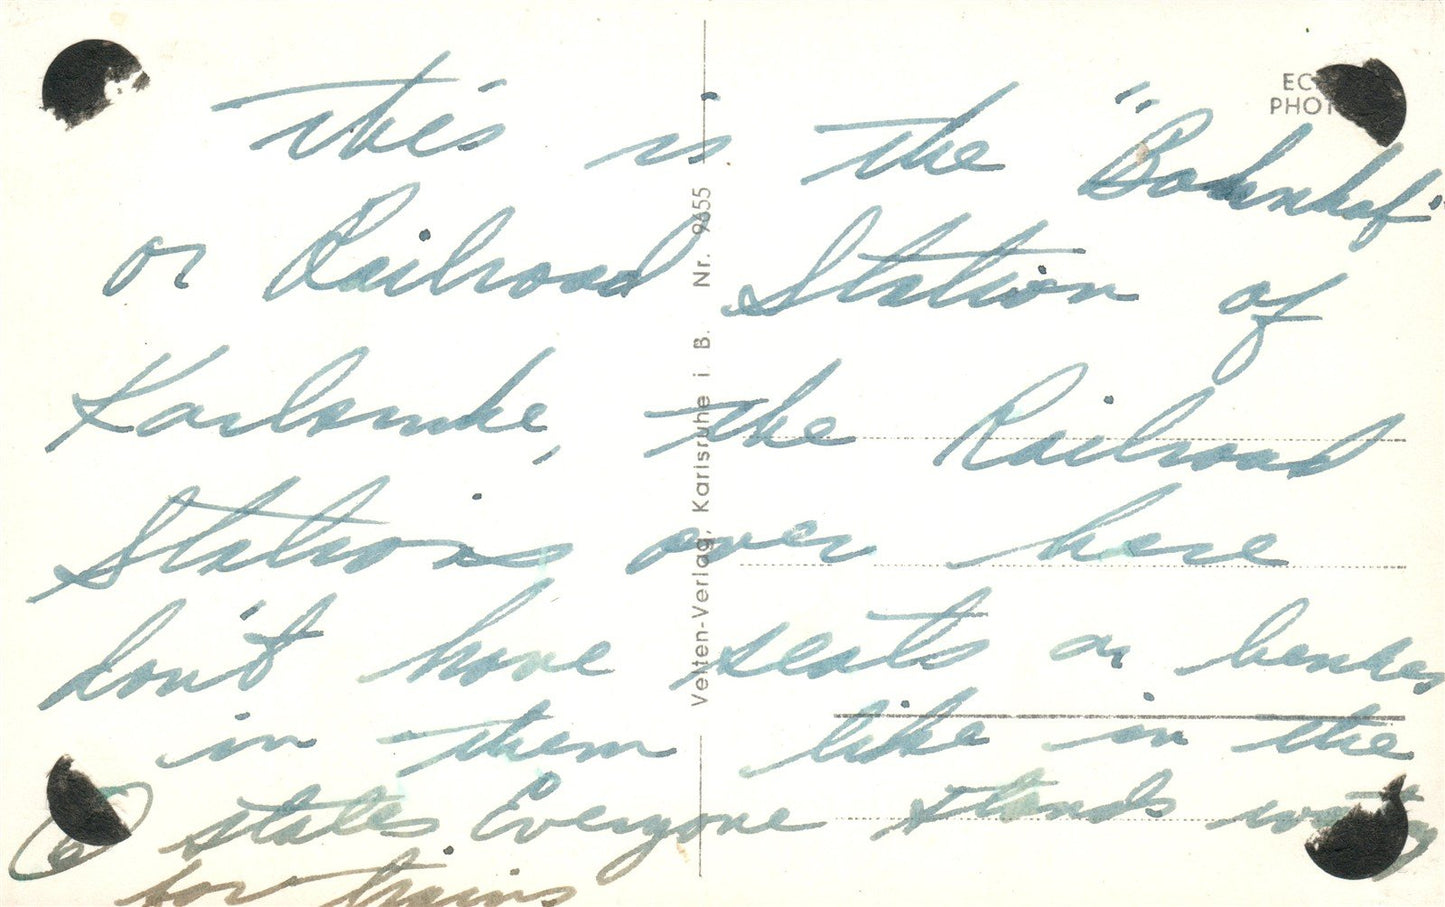 This is the "Bahnhof"
or Railroad Station of
Karlsruhe, the Railroad
Stations over here
don't have seats or benches
in them like in the
states. Everyone stands
for trains
Velten-Verlag, Karlsruhe i. B. Nr. 9655